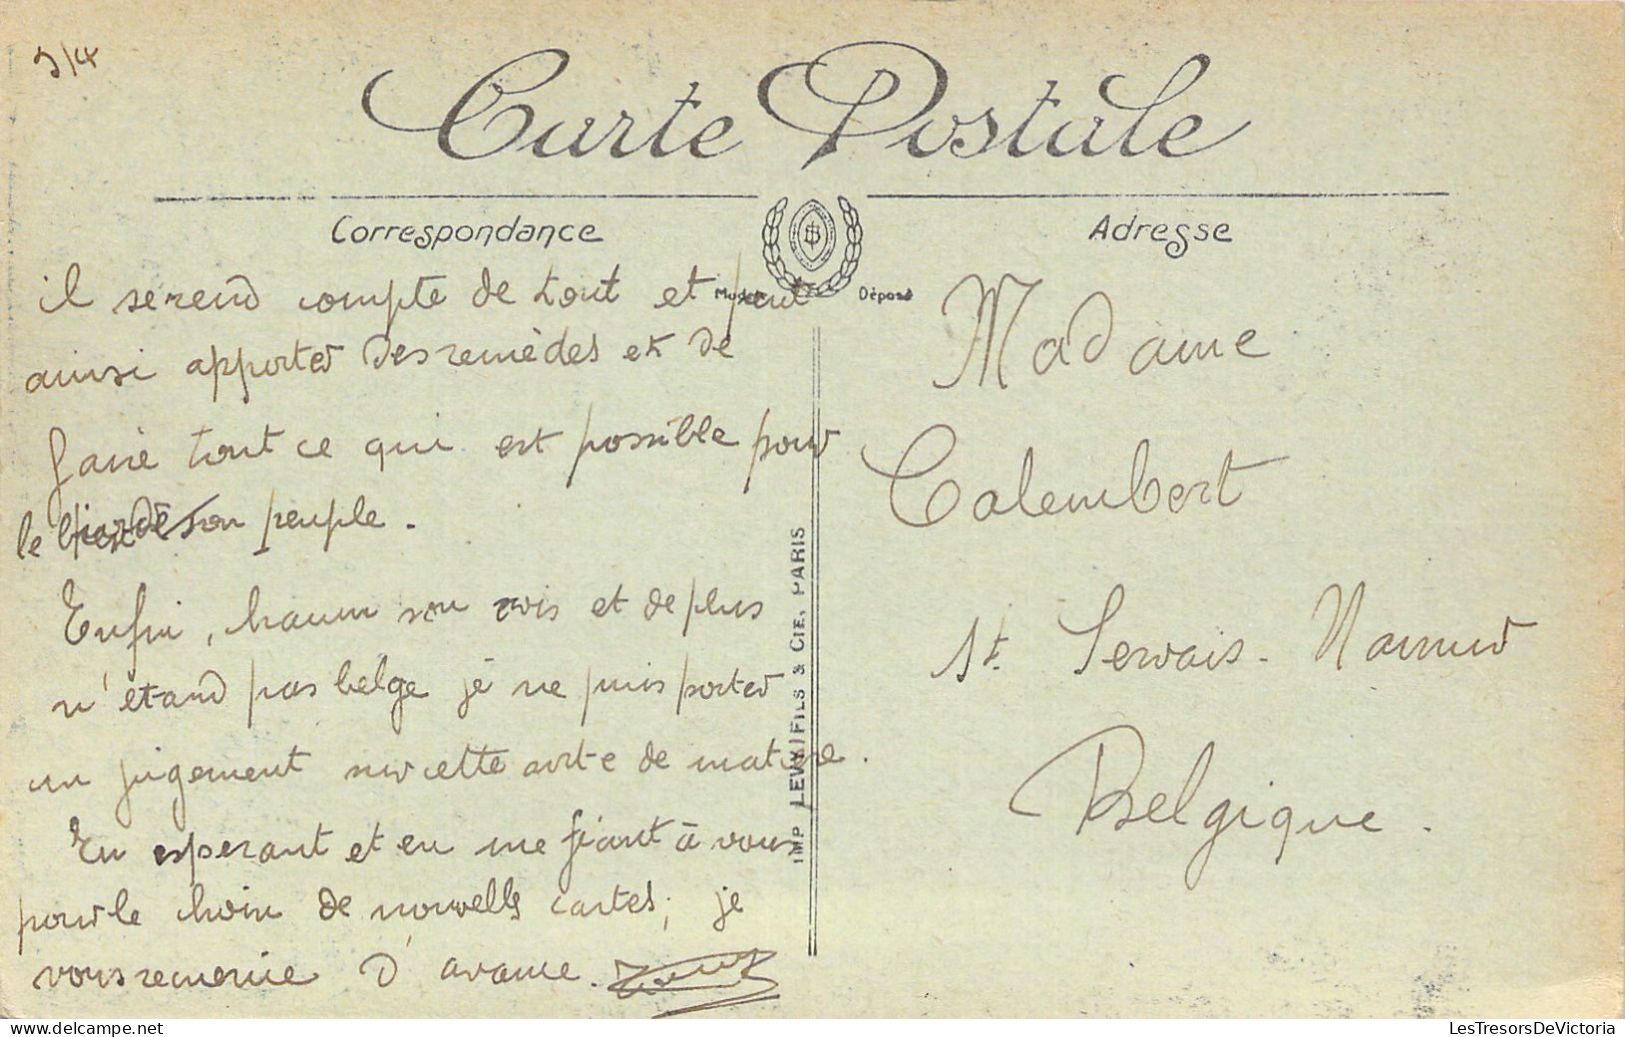 5/4
Carte Postale
Correspondance
Adresse
Déposé
il se rend compte de tout et peut
ainsi apporter des remèdes et de
faire tout ce qui est possible pour
le bien de son peuple.
Enfin, chacun son avis et de plus
n'étand pas belge je ne puis porter
un jugement sur cette sorte de matière.
En esperant et en me fiant à vous
pour le choix de nouvelles cartes; je
vous remercie d'avance.
Madame
Calembert
St. Servais - Namur
Belgique.
IMP LEVY FILS & CIE, PARIS
LesTresorsDeVictoria